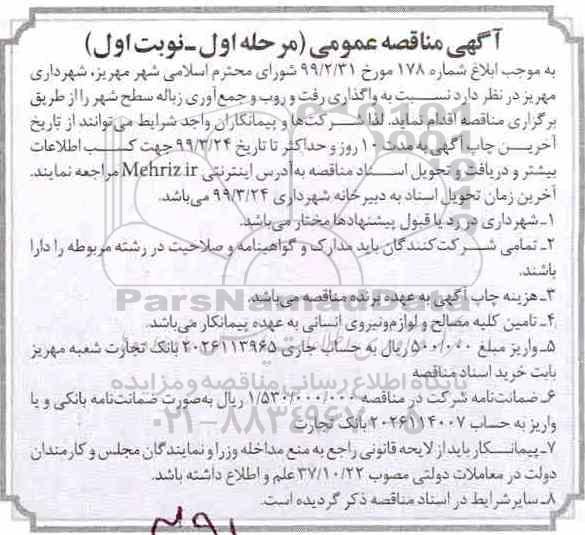 آگهی مناقصه عمومی (مرحله اول ـ نوبت اول)
به موجب ابلاغ شماره ۱۷۸ مورخ ۹۹/۲/۳۱ شورای محترم اسلامی شهر مهریز، شهرداری
مهریز در نظر دارد نسبت به واگذاری رفت و روب و جمع‌آوری زباله سطح شهر را از طریق
برگزاری مناقصه اقدام نماید. لذا شرکت‌ها و پیمانکاران واجد شرایط می‌توانند از تاریخ
آخرین چاپ آگهی به مدت ۱۰ روز و حداکثر تا تاریخ ۹۹/۳/۲۴ جهت کسب اطلاعات
بیشتر و دریافت و تحویل اسناد مناقصه به آدرس اینترنتی Mehriz.ir مراجعه نمایند.
آخرین زمان تحویل اسناد به دبیرخانه شهرداری ۹۹/۳/۲۴ می‌باشد.
۱ـ شهرداری در رد یا قبول پیشنهادها مختار می‌باشد.
۲ـ تمامی شرکت‌کنندگان باید مدارک و گواهینامه و صلاحیت در رشته مربوطه را دارا
باشند.
ParsNamadData
۳ـ هزینه چاپ آگهی به عهده برنده مناقصه می‌باشد.
۴ـ تامین کلیه مصالح و لوازم‌ونیروی انسانی به عهده پیمانکار می‌باشد.
۵ـ واریز مبلغ ۵۰۰/۰۰۰ ریال به حساب جاری ۲۰۲۶۱۱۳۹۶۵ بانک تجارت شعبه مهریز
بابت خرید اسناد مناقصه
پایگاه اطلاع رسانی مناقصه و مزایده
۶ـ ضمانت‌نامه شرکت در مناقصه ۱/۵۳۰/۰۰۰/۰۰۰ ریال به‌صورت ضمانت‌نامه بانکی و یا
واریز به حساب ۲۰۲۶۱۱۴۰۰۷ بانک تجارت
۰۲۱-۸۸۳۴۹۶۷۰-۵
۷ـ پیمانکار باید از لایحه قانونی راجع به منع مداخله وزرا و نمایندگان مجلس و کارمندان
دولت در معاملات دولتی مصوب ۳۷/۱۰/۲۲ علم و اطلاع داشته باشد.
۸ـ سایر شرایط در اسناد مناقصه ذکر گردیده است.